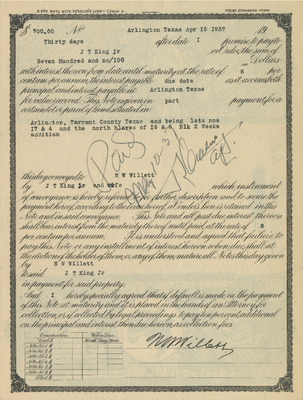 TEXAS STANDARD FORM
$ 700.00 No. Arlington Texas Apr 15 1937 19
Thirty days after date I promise to pay
to J T King Jr or order, the sum of
Seven Hundred and no/100 Dollars
with interest thereon from date until maturity at the rate of 8 per
cent per annum, the interest payable due date as it accrues both
principal and interest payable at Arlington Texas
for value received. This Note is given in part payment for a
certain lot or parcel of land situated in
Arlington, Tarrant County Texas and being lots nos
17 & 4 and the north
Blk 2 Weeks
addition
Paid
this day conveyed to N W Willett
by J T King Jr and wife which instrument
of conveyance is hereby referred to for further description and to secure the
payment hereof, according to the tenor hereof, a Vendor's lien is retained in this
Note and in said conveyance. This Note and all past due interest thereon
shall bear interest from the maturity thereof until paid, at the rate of 8
per cent per annum. It is understood and agreed that failure to
pay this Note, or any installment of interest thereon when due, shall at
the election of the holder of them, or any of them, mature all Notes this day given
by N W Willett
to said J T King Jr
in payment for said property.
And I hereby specially agree that if default is made in the payment
of this Note at maturity and it is placed in the hands of an Attorney for
collection, or if collected by legal proceedings to pay ten per cent additional
on the principal and interest then due hereon as collection fees.
N W Willett